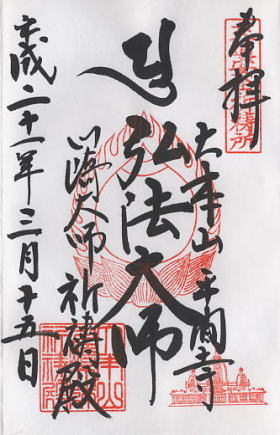 奉拝
大本山 平間寺
弘法大師
川崎大師 祈禱殿
平成二十一年三月十五日